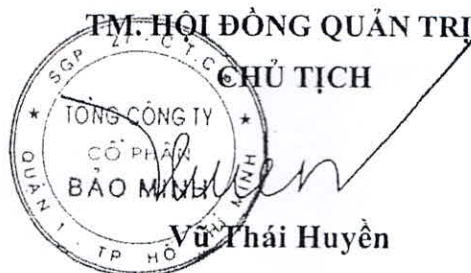 TM. HỘI ĐỒNG QUẢN TRỊ
CHỦ TỊCH
TỔNG CÔNG TY
CỔ PHẦN
BẢO MINH
QUẬN 1 - TP HỒ CHÍ MINH
Vũ Thái Huyền